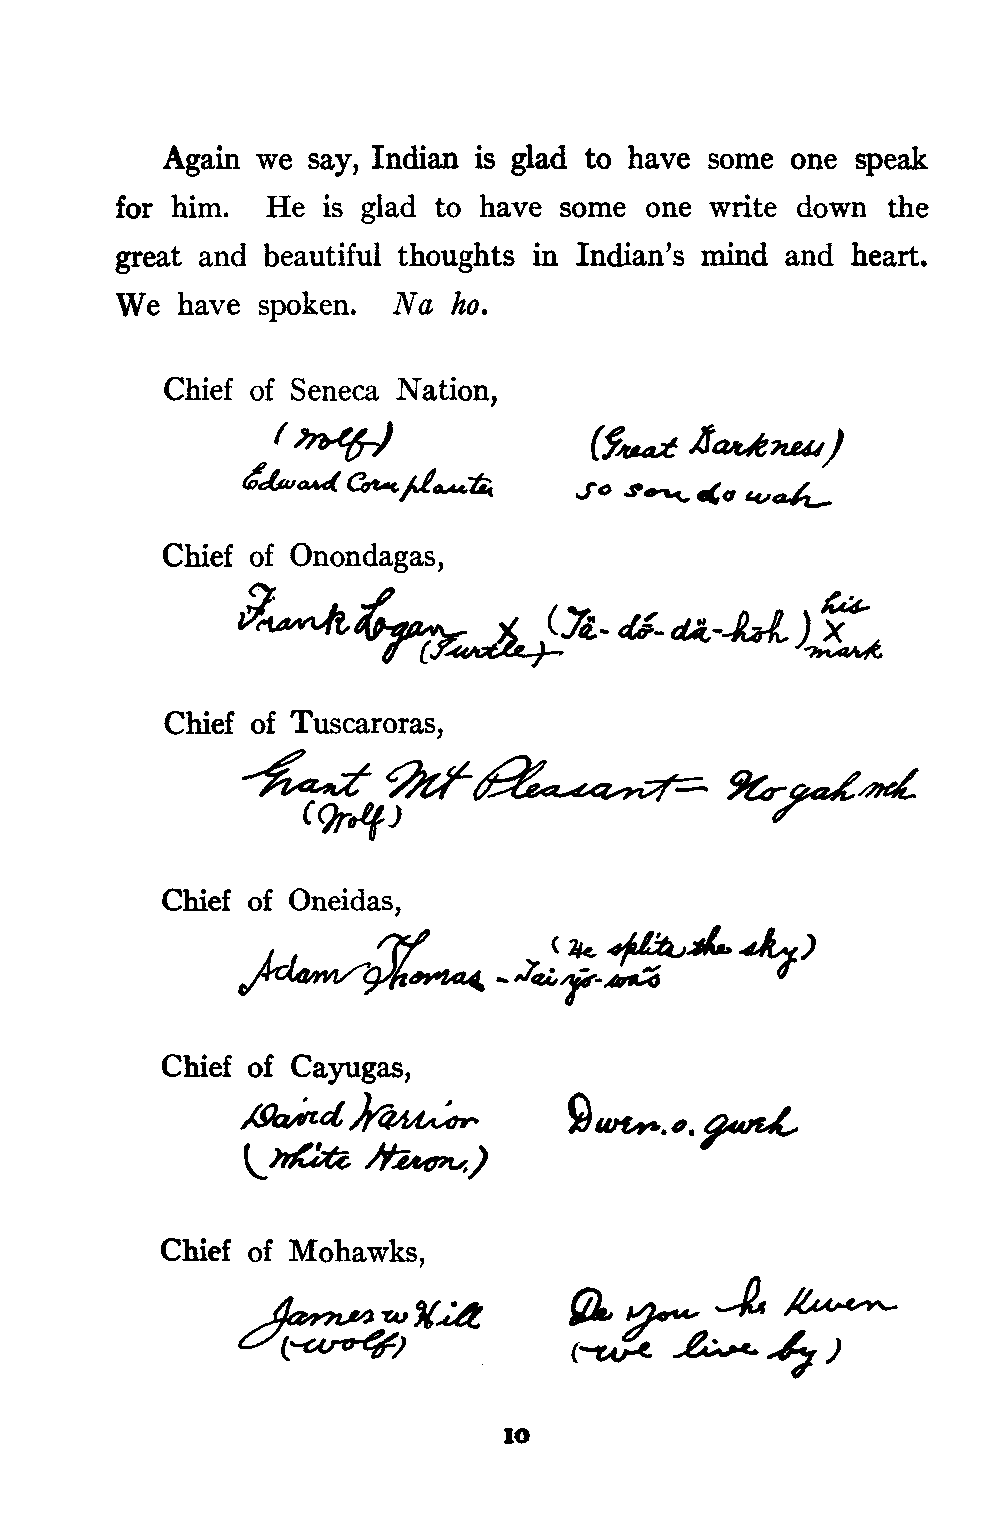 Again we say, Indian is glad to have some one speak
for him. He is glad to have some one write down the
great and beautiful thoughts in Indian's mind and heart.
We have spoken. Na ho.
Chief of Seneca Nation,
(Wolf) (Great Darkness)
Edward Cornplanter So son do wah
Chief of Onondagas,
his
Frank Logan X (Tä-dó-dä-hōh) X
(Turtle) mark
Chief of Tuscaroras,
Grant Mt Pleasant = No gah neh
(Wolf)
Chief of Oneidas,
(He splits the sky)
Adam Thomas -
Chief of Cayugas,
David Warrior Dwen.o.gweh
(White Heron.)
Chief of Mohawks,
James W Hill De you he Kwen
(Wolf) (We live by)
10